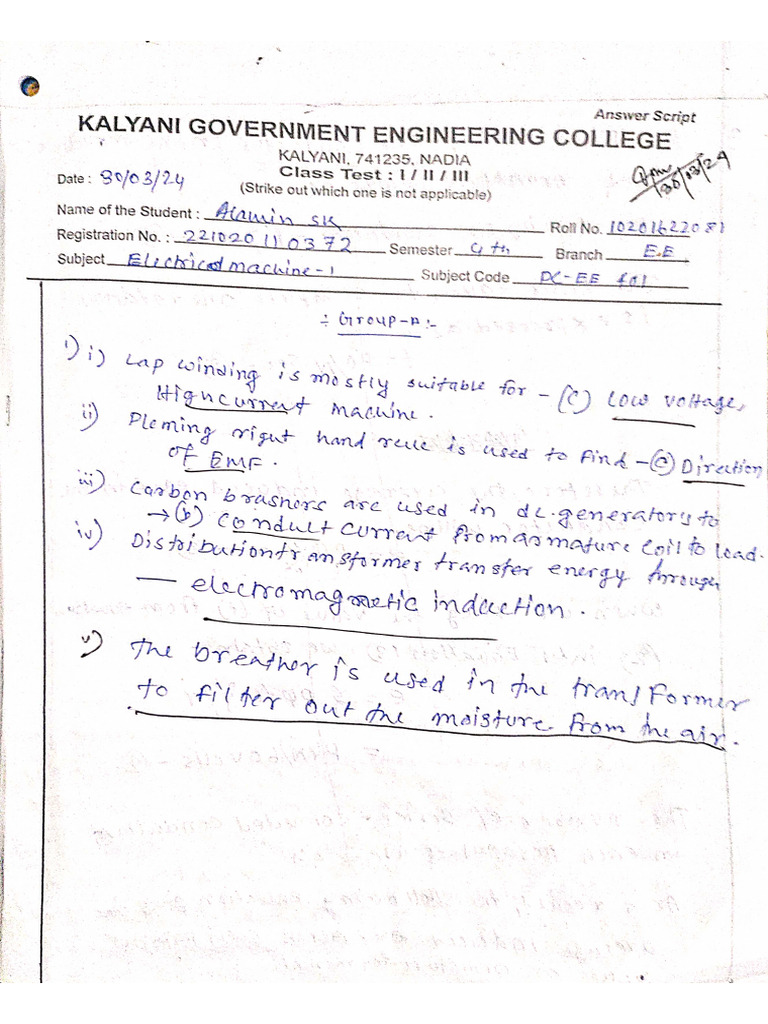 Answer Script
KALYANI GOVERNMENT ENGINEERING COLLEGE
KALYANI, 741235, NADIA
Class Test : I / II / III
(Strike out which one is not applicable)
Date : 30/03/24
Name of the Student : Alamin SK Roll No. 10201622081
Registration No. : 221020110372 Semester 4th Branch E.E
Subject Electrical machine-1 Subject Code PC-EE 401
÷ Group-A :-
1) i) Lap winding is mostly suitable for - (c) Low voltage,
High current machine.
ii) Pleming right hand rule is used to find - (a) Direction
of EMF.
iii) Carbon brashers are used in dc.generators to
→ (b) Conduct current from armature coil to load.
iv) Distribution transformer transfer energy through
— electromagnetic induction.
v) The breather is used in the transformer
to filter out the moisture from the air.